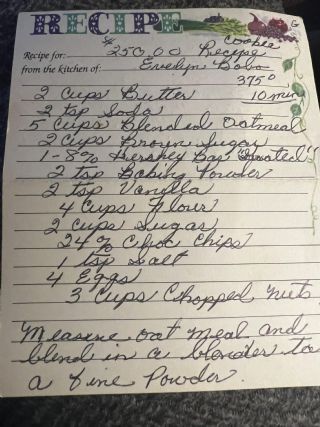 RECIPE
$250.00 Cookie
Recipe for: Recipe
from the kitchen of: Evelyn Bobo
375°
2 Cups Butter 10 min
2 tsp Soda
5 Cups Blended Oatmeal
2 Cups Brown Sugar
1-8 oz Hershey Bar "Grated"
2 tsp Baking Powder
2 tsp Vanilla
4 Cups Flour
2 Cups Sugar
24 oz Choc Chips
1 tsp Salt
4 Eggs
3 Cups Chopped Nuts
Measure oat meal and
blend in a blender to
a fine Powder.